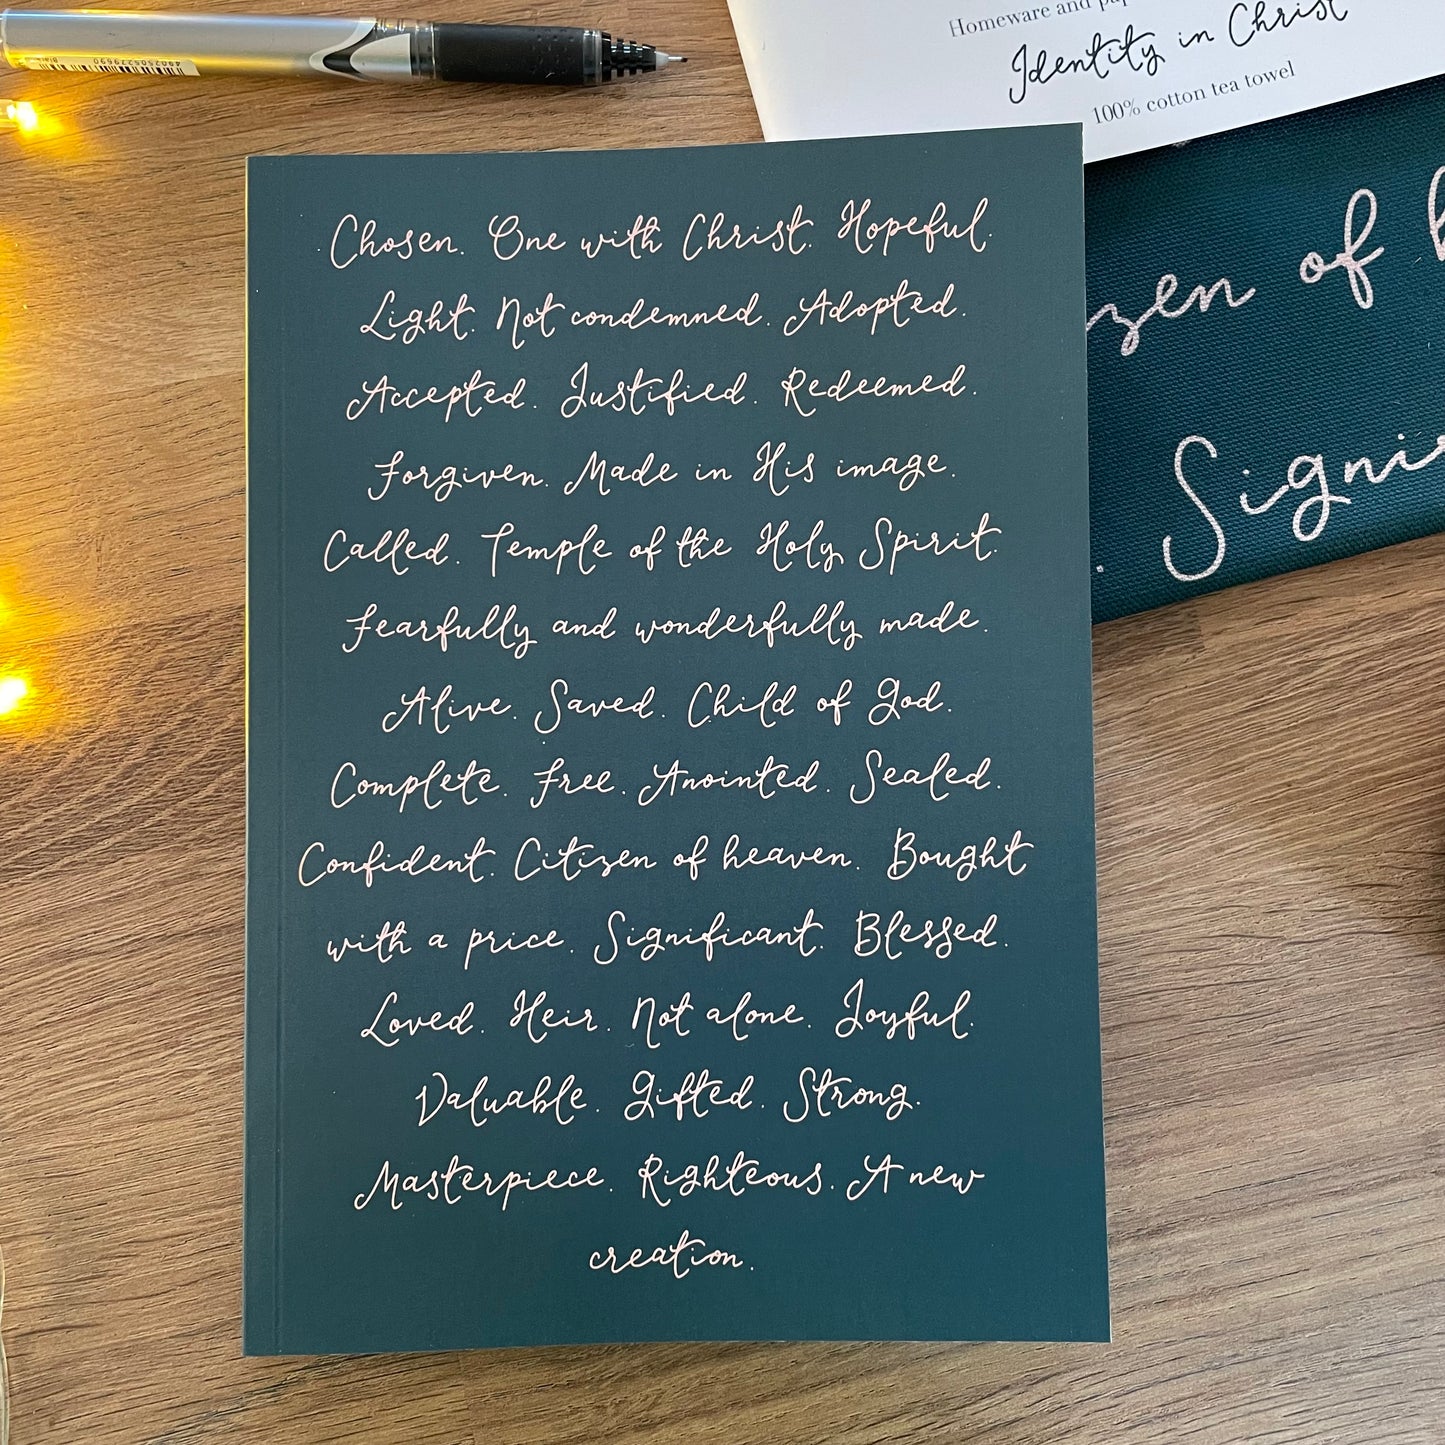 4902505279690
Homeware and
Identity in Christ
100% cotton tea towel
Chosen. One with Christ. Hopeful.
Light. Not condemned. Adopted.
Accepted. Justified. Redeemed.
Forgiven. Made in His image.
Called. Temple of the Holy Spirit.
Fearfully and wonderfully made.
Alive. Saved. Child of God.
Complete. Free. Anointed. Sealed.
Confident. Citizen of heaven. Bought
with a price. Significant. Blessed.
Loved. Heir. Not alone. Joyful.
Valuable. Gifted. Strong.
Masterpiece. Righteous. A new
creation.
zen of h
. Signi